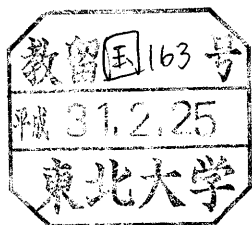 教留国163号
平成 31.2.25
東北大学